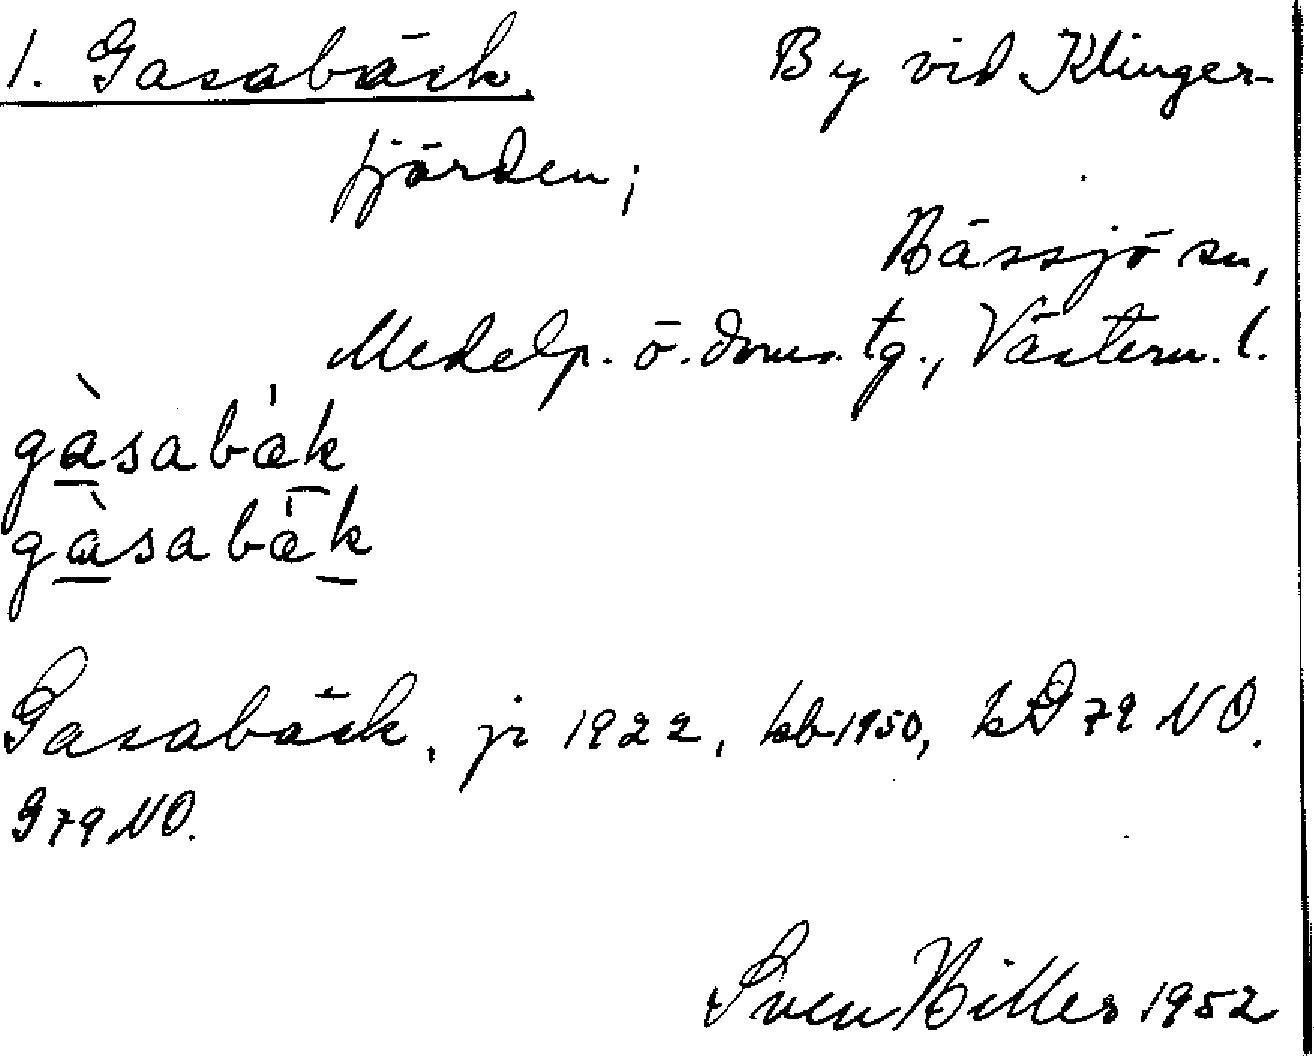 1. Gasabäck. By vid Klinger-
fjärden;
Hässjö sn,
Medelp. ö. doms. tg., Västern. l.
gàsabák
gàsabák
Gasabäck, jr 1922, kb 1950, kG 79 NO.
G 79 NO.
Sven Hilles 1952